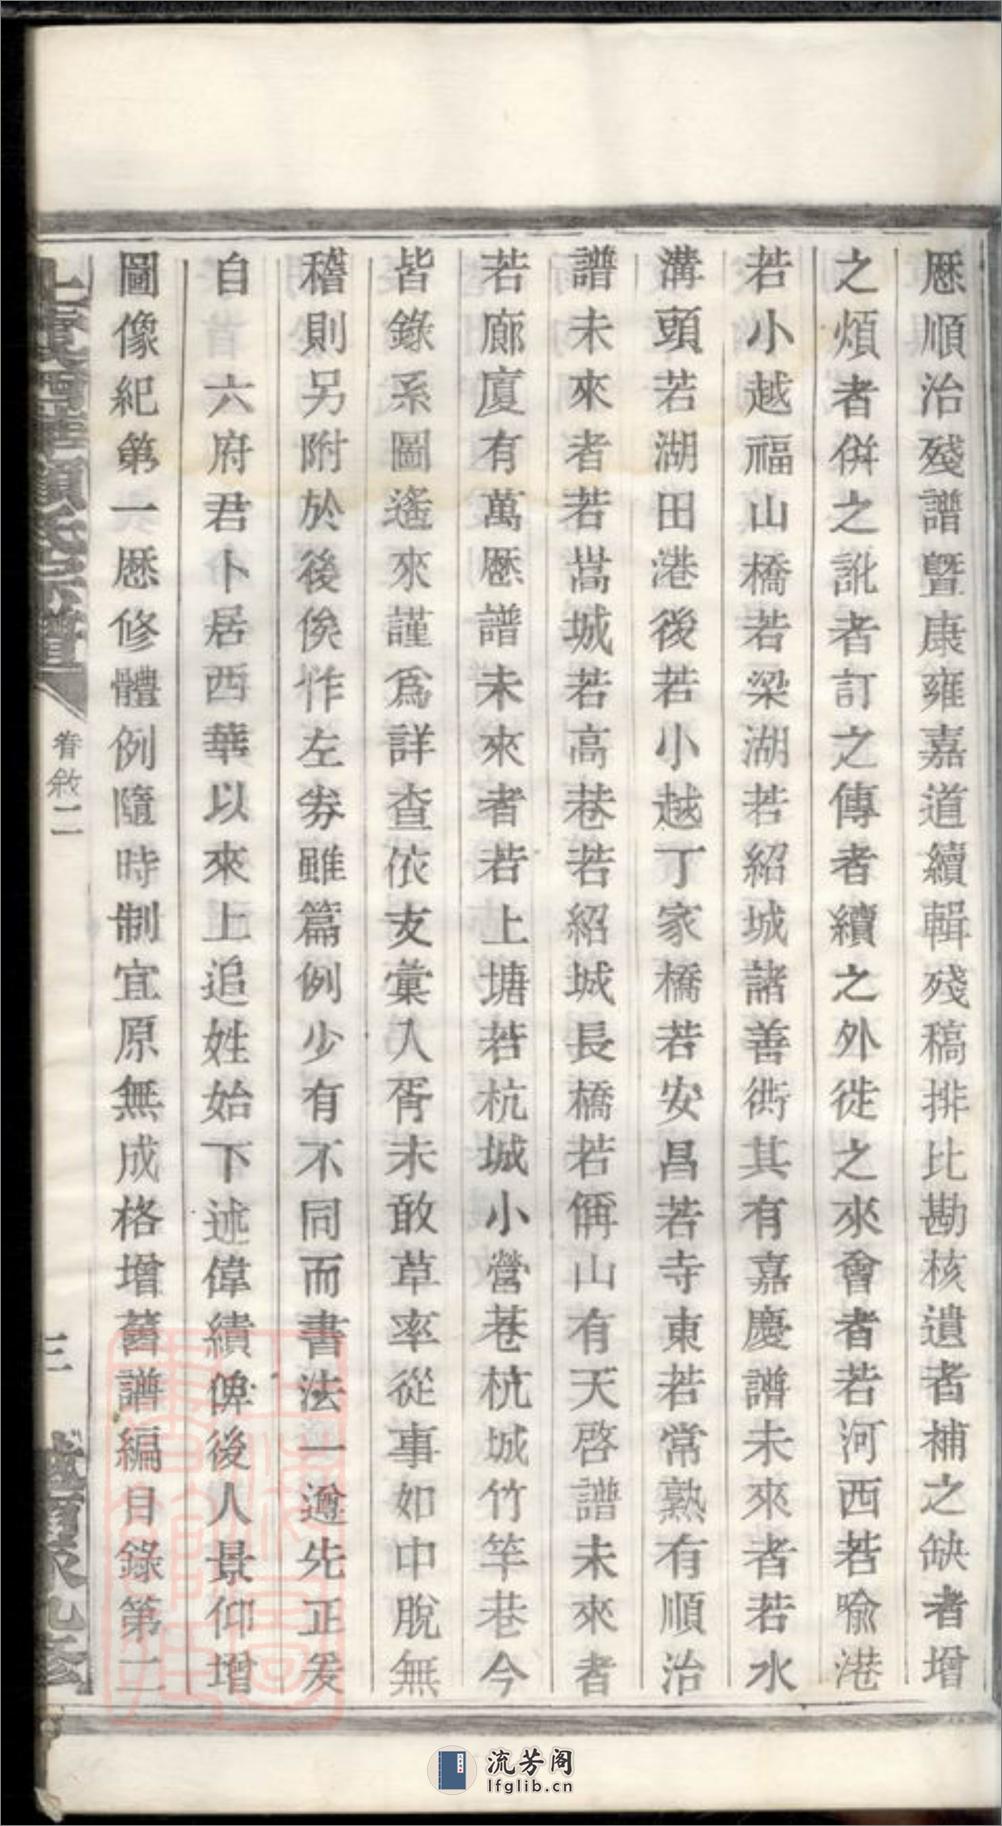 厯順治殘譜曁康雍嘉道續輯殘稿排比勘核遺者補之缺者增
之煩者併之訛者訂之傳者續之外徙之來會者若河西若喩港
若小越福山橋若梁湖若紹城諸善衖其有嘉慶譜未來者若水
溝頭若湖田港後若小越丁家橋若安昌若寺東若常熟有順治
譜未來者若嵩城若高巷若紹城長橋若偁山有天啓譜未來者
若廊廈有萬厯譜未來者若上塘若杭城小營巷杭城竹竿巷今
皆錄系圖遙來謹爲詳查依支彙入胥未敢草率從事如中脫無
稽則另附於後俟作左劵雖篇例少有不同而書法一遵先正爰
自 六府君卜居西華以來上追姓始下述偉績俾後人景仰增
圖像紀第一厯修體例隨時制宜原無成格增舊譜編目錄第二
西華顧氏宗譜
眷敘二
三
流芳阁
lfglib.cn